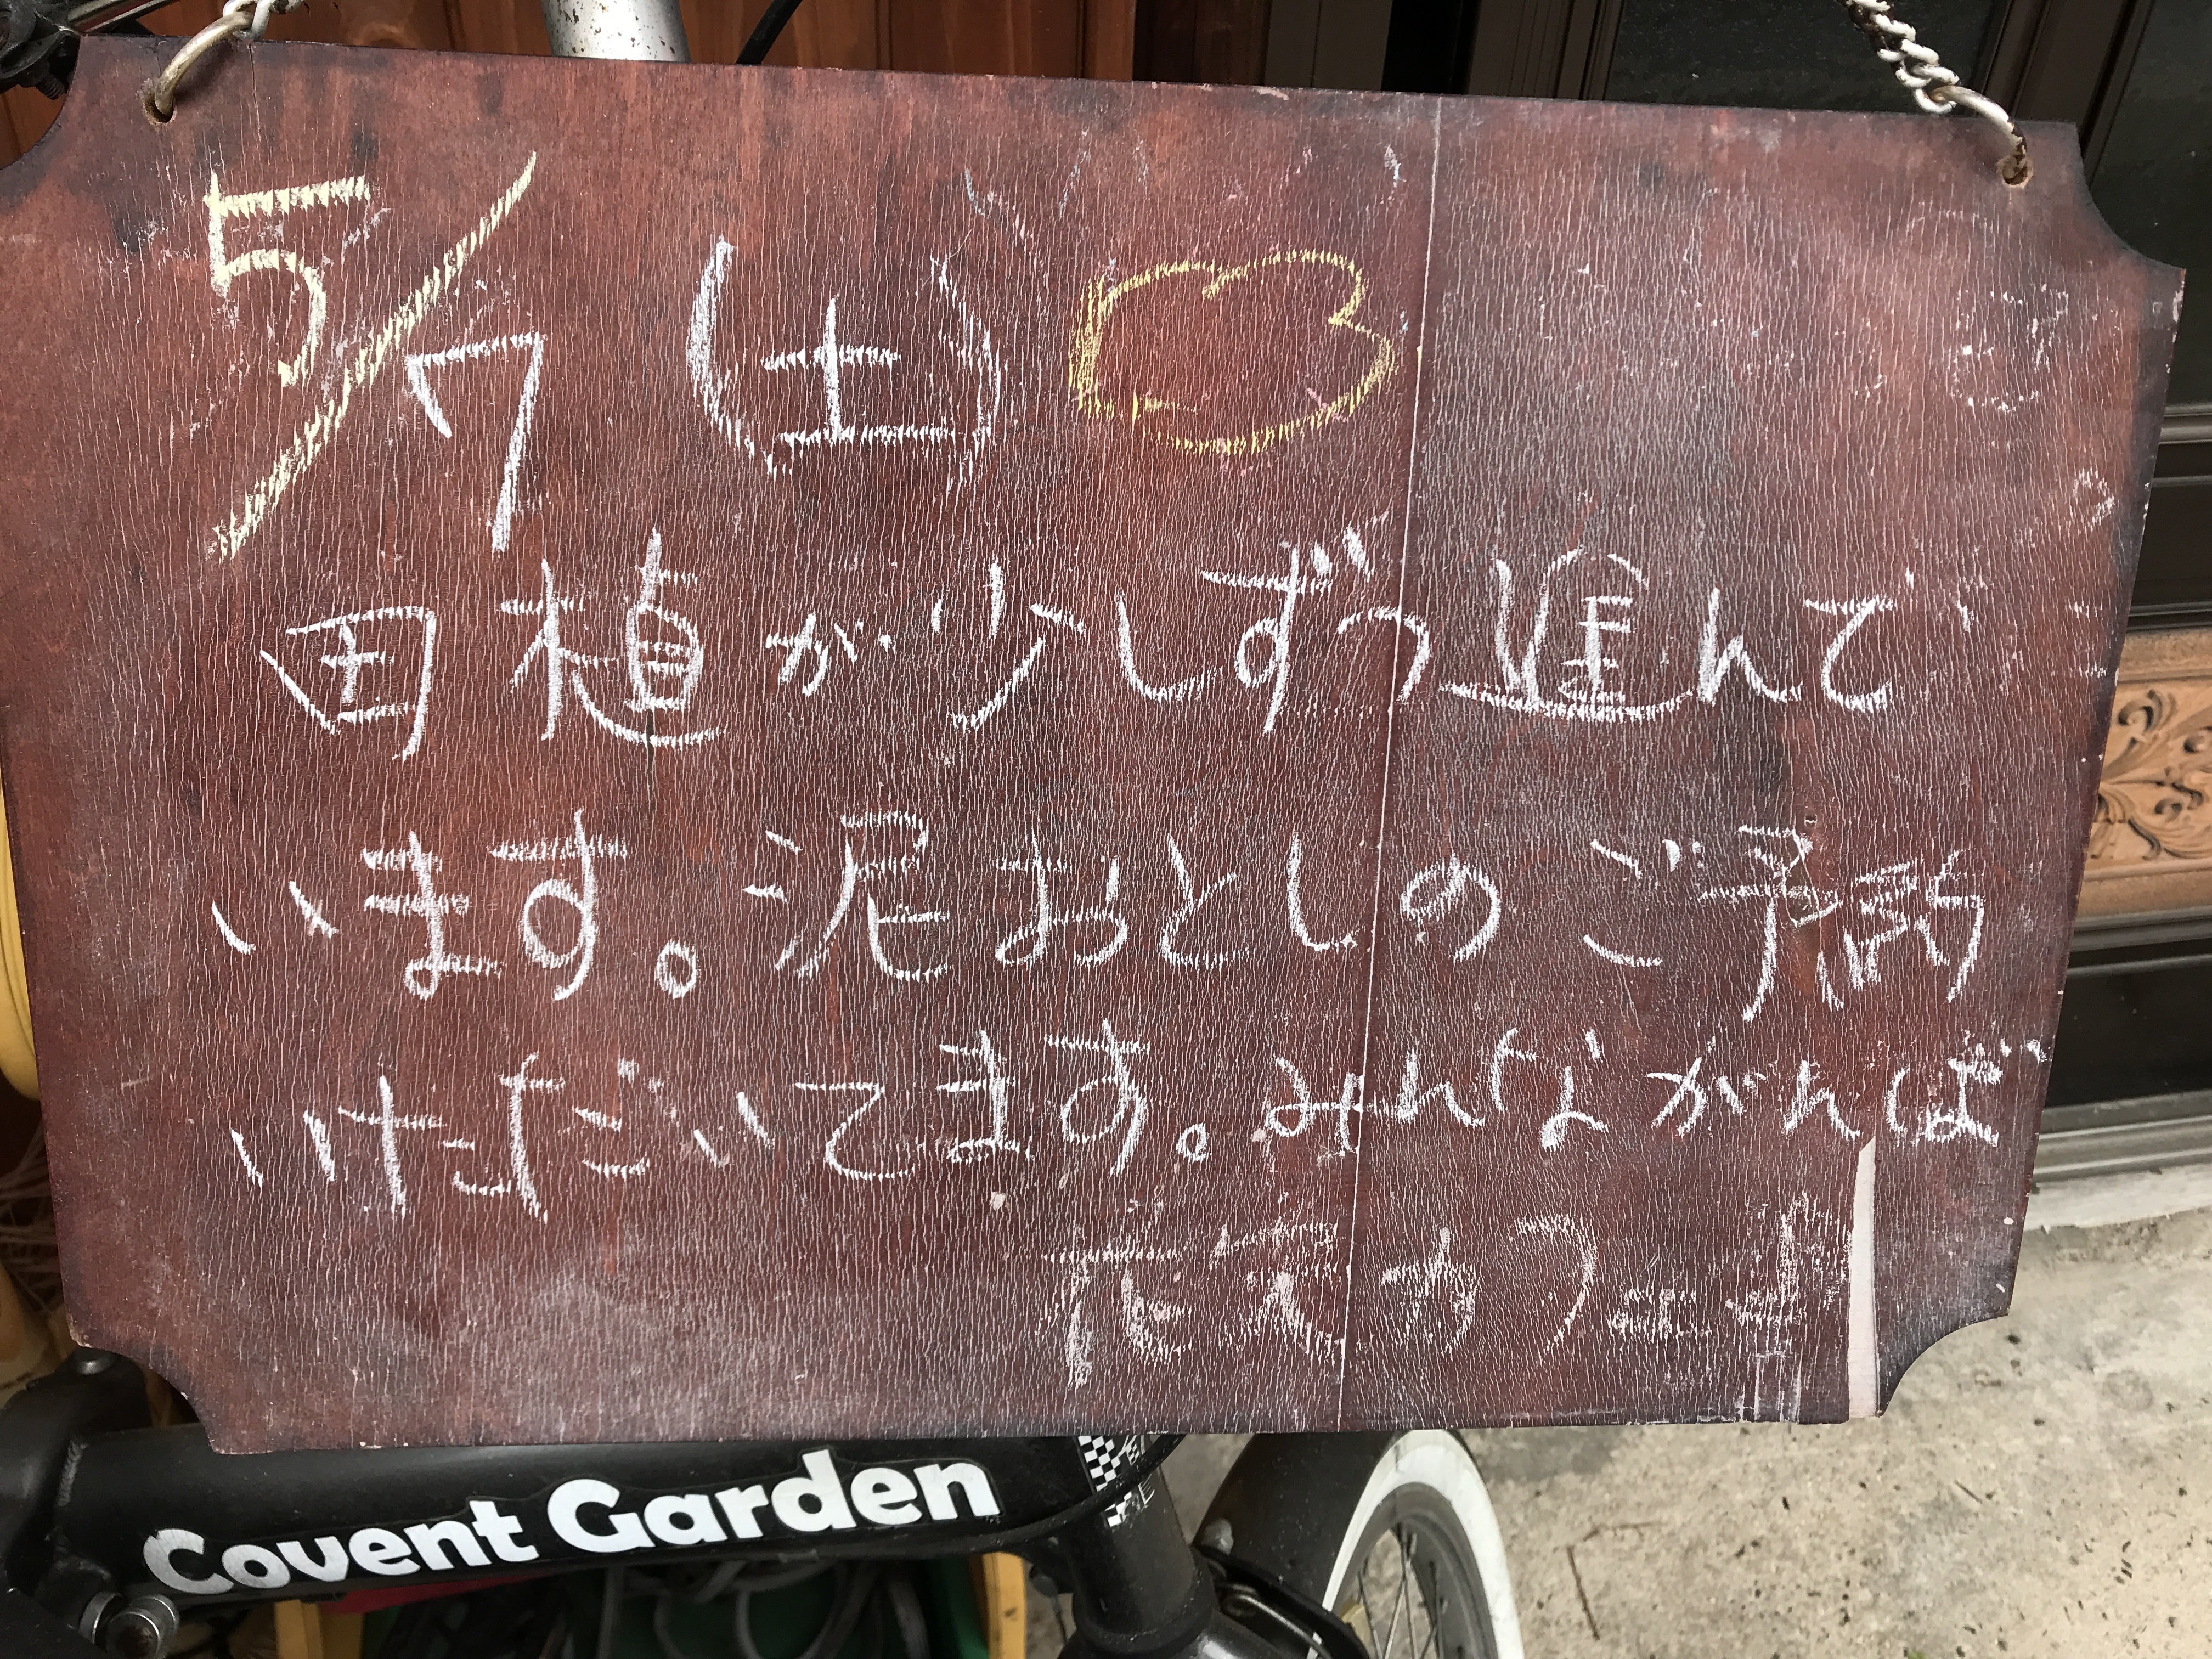 5/7 (土)
田植が少しずつ進んで
います。泥おとしのご予約
いただいてます。みんながんば
Covent Garden